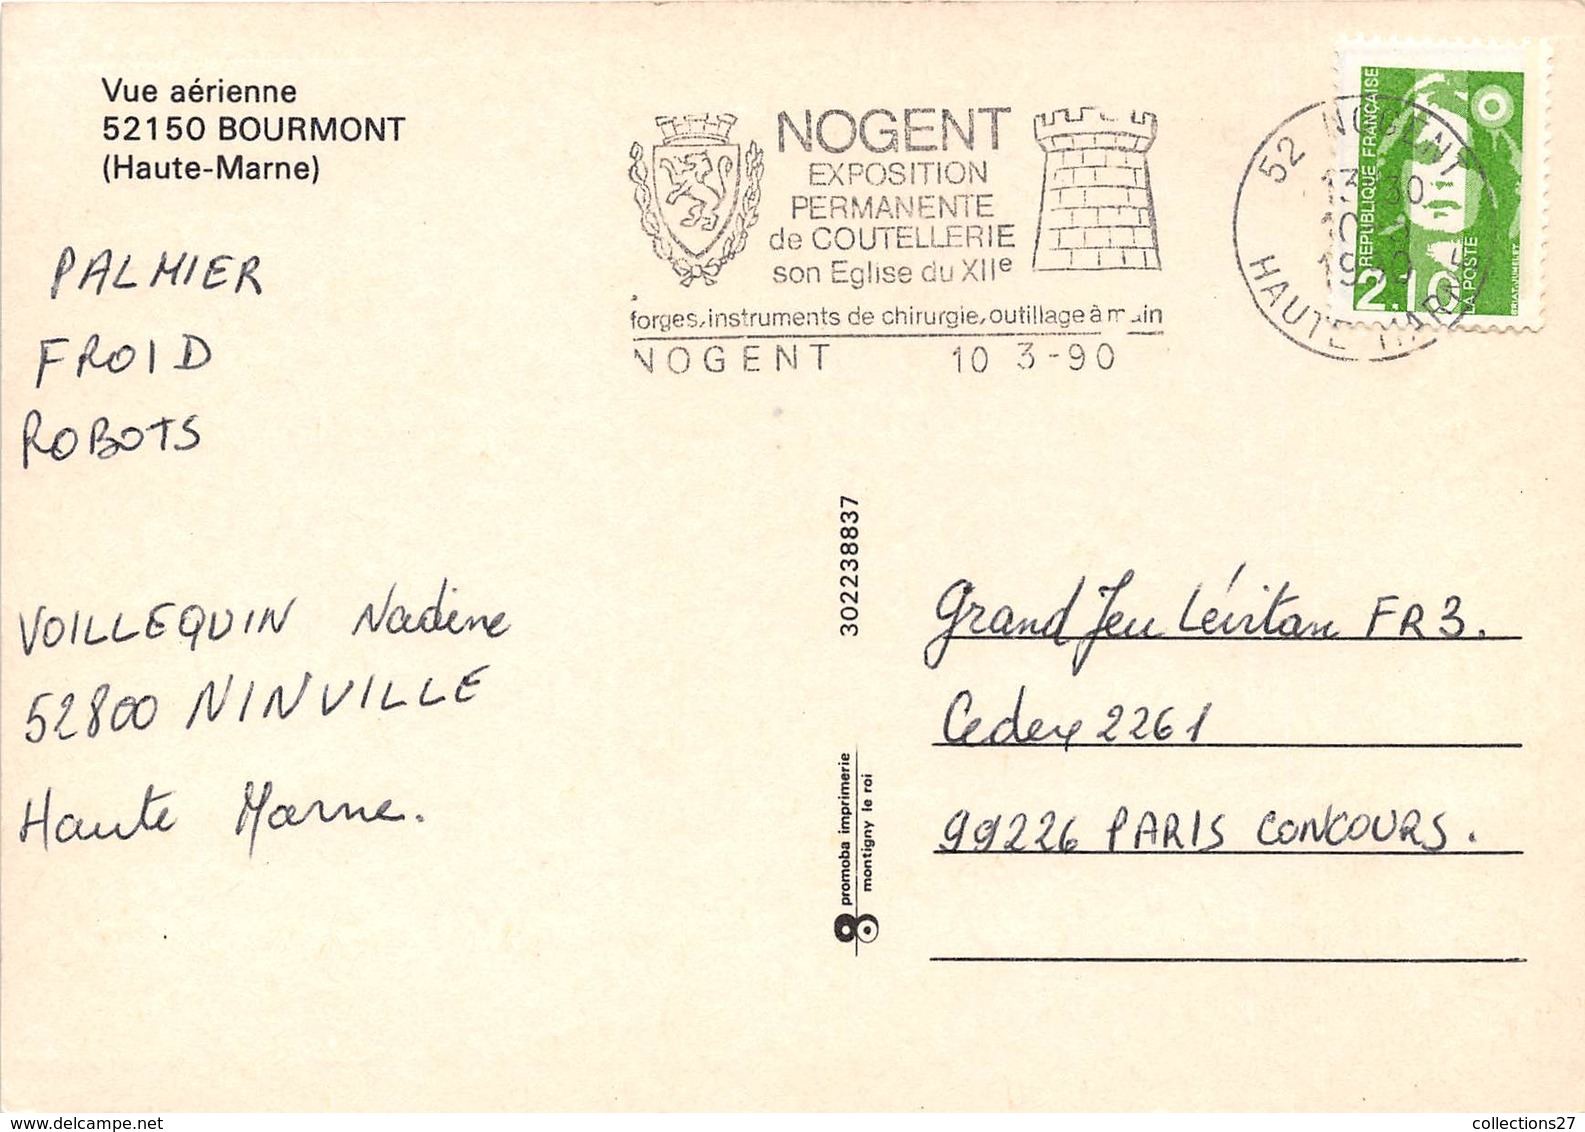 Vue aérienne
52150 BOURMONT
(Haute-Marne)
NOGENT
EXPOSITION
PERMANENTE
de COUTELLERIE
son Eglise du XIIe
forges, instruments de chirurgie, outillage à main
NOGENT 10 3-90
52 NOGENT
13 30
1990
HAUTE MARNE
REPUBLIQUE FRANÇAISE
2.10
LA POSTE
PALMIER
FROID
ROBOTS
VOILLEQUIN Nadine
52800 NINVILLE
Haute Marne.
302238837
promoba imprimerie
montigny le roi
Grand Jeu Lévitan FR3.
Cedex 2261
99226 PARIS CONCOURS.
collections27